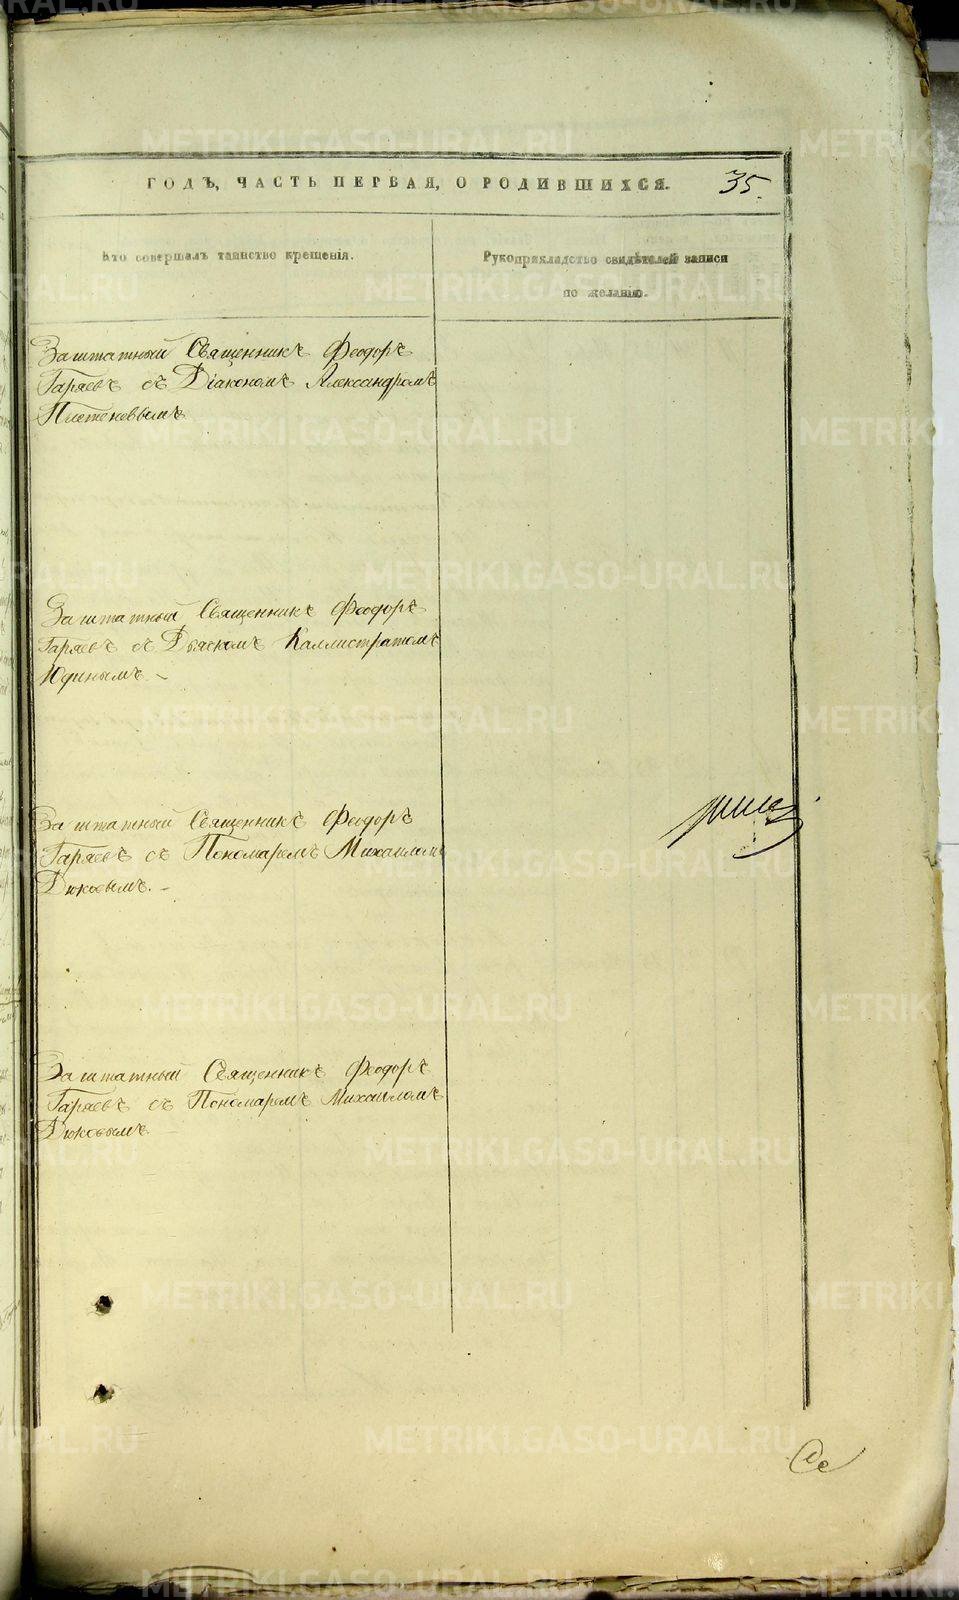 ГОДЪ, ЧАСТЬ ПЕРВАЯ, О РОДИВШИХСЯ.
35.
Кто совершалъ таинство крещенія.
Рукоприкладство свидѣтелей записи
по желанію.
Заштатный Священникъ Ѳеодоръ
Гаряевъ съ Діакономъ Александромъ
Плетеневымъ
Заштатный Священникъ Ѳеодоръ
Гаряевъ съ Дьякомъ Каллистратомъ
Юдинымъ. –
Заштатный Священникъ Ѳеодоръ
Гаряевъ съ Пономаремъ Михаиломъ
Дюковымъ. –
Заштатный Священникъ Ѳеодоръ
Гаряевъ съ Пономаремъ Михаиломъ
Дюковымъ. –
METRIKI.GASO-URAL.RU